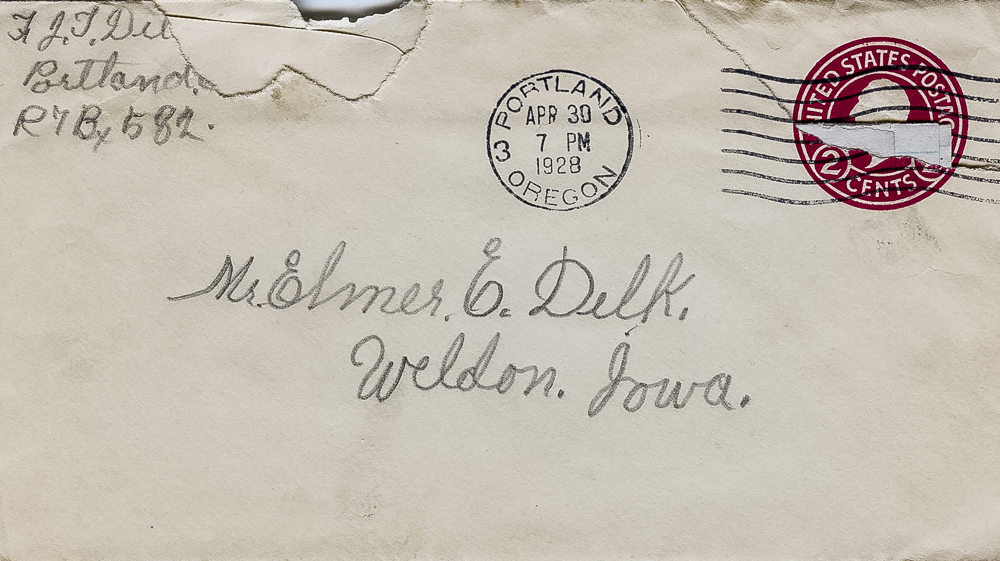 J.T. Del
Portland.
R7 Bx 582.
PORTLAND
APR 30
7 PM
1928
3
OREGON
UNITED STATES POSTAG
2
CENTS
Mr. Elmer. E. Delk.
Weldon. Iowa.